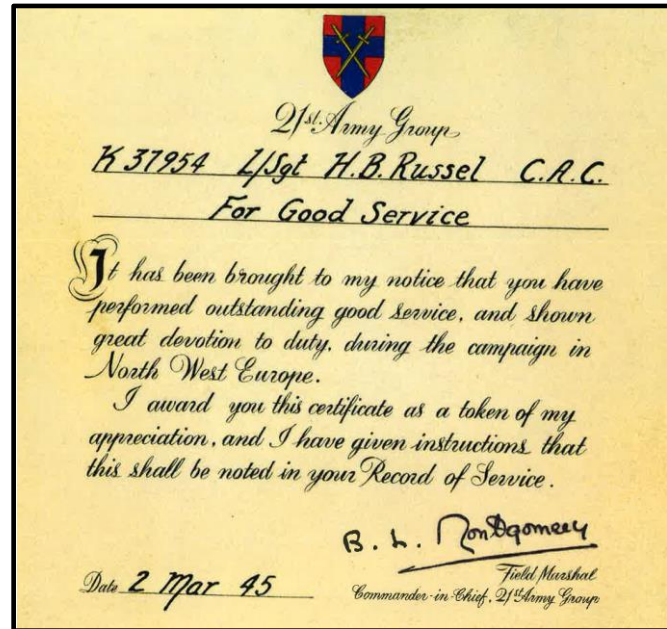 21st Army Group
K 37954 L/Sgt H.B. Russel C.A.C.
For Good Service
It has been brought to my notice that you have
performed outstanding good service, and shown
great devotion to duty, during the campaign in
North West Europe.
I award you this certificate as a token of my
appreciation, and I have given instructions that
this shall be noted in your Record of Service.
B. L. Montgomery
Date 2 Mar 45
Field Marshal
Commander-in-Chief, 21st Army Group